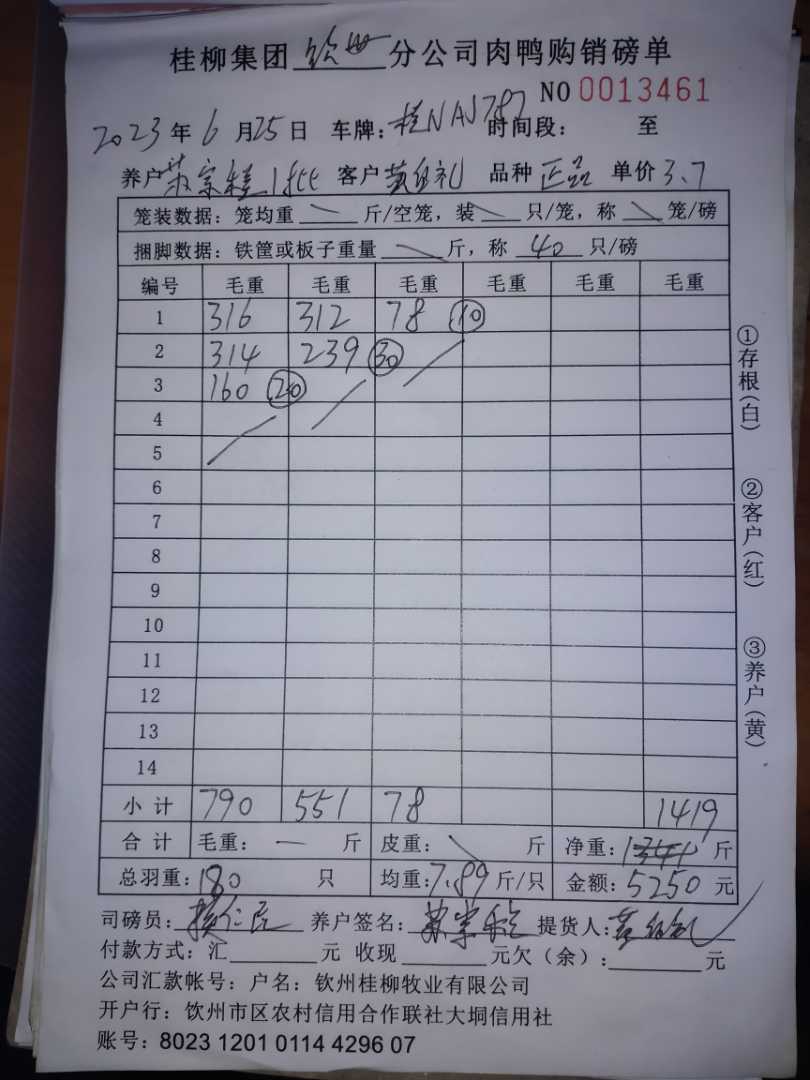 桂柳集团 钦州 分公司肉鸭购销磅单
NO 0013461
2023 年 6 月 25 日 车牌: 桂NAJ787 时间段: 至
养户 宗桂 1批 客户 黄 礼 品种 正品 单价 3.7
笼装数据: 笼均重 斤/空笼, 装 只/笼, 称 笼/磅
捆脚数据: 铁筐或板子重量 斤, 称 40 只/磅
编号 毛重 毛重 毛重 毛重 毛重 毛重
1 316 312 78 ⑩
2 314 239 ㉚
3 160 ⑳
4
5
6
7
8
9
10
11
12
13
14
小计 790 551 78 1419
合计 毛重: — 斤 皮重: 斤 净重: 1341 斤
总羽重: 180 只 均重: 7.89 斤/只 金额: 5250 元
司磅员: 仁民 养户签名: 提货人: 黄 礼
付款方式: 汇 元 收现 元欠(余): 元
公司汇款帐号: 户名: 钦州桂柳牧业有限公司
开户行: 钦州市区农村信用合作联社大垌信用社
账号: 8023 1201 0114 4296 07
①存根(白)
②客户(红)
③养户(黄)